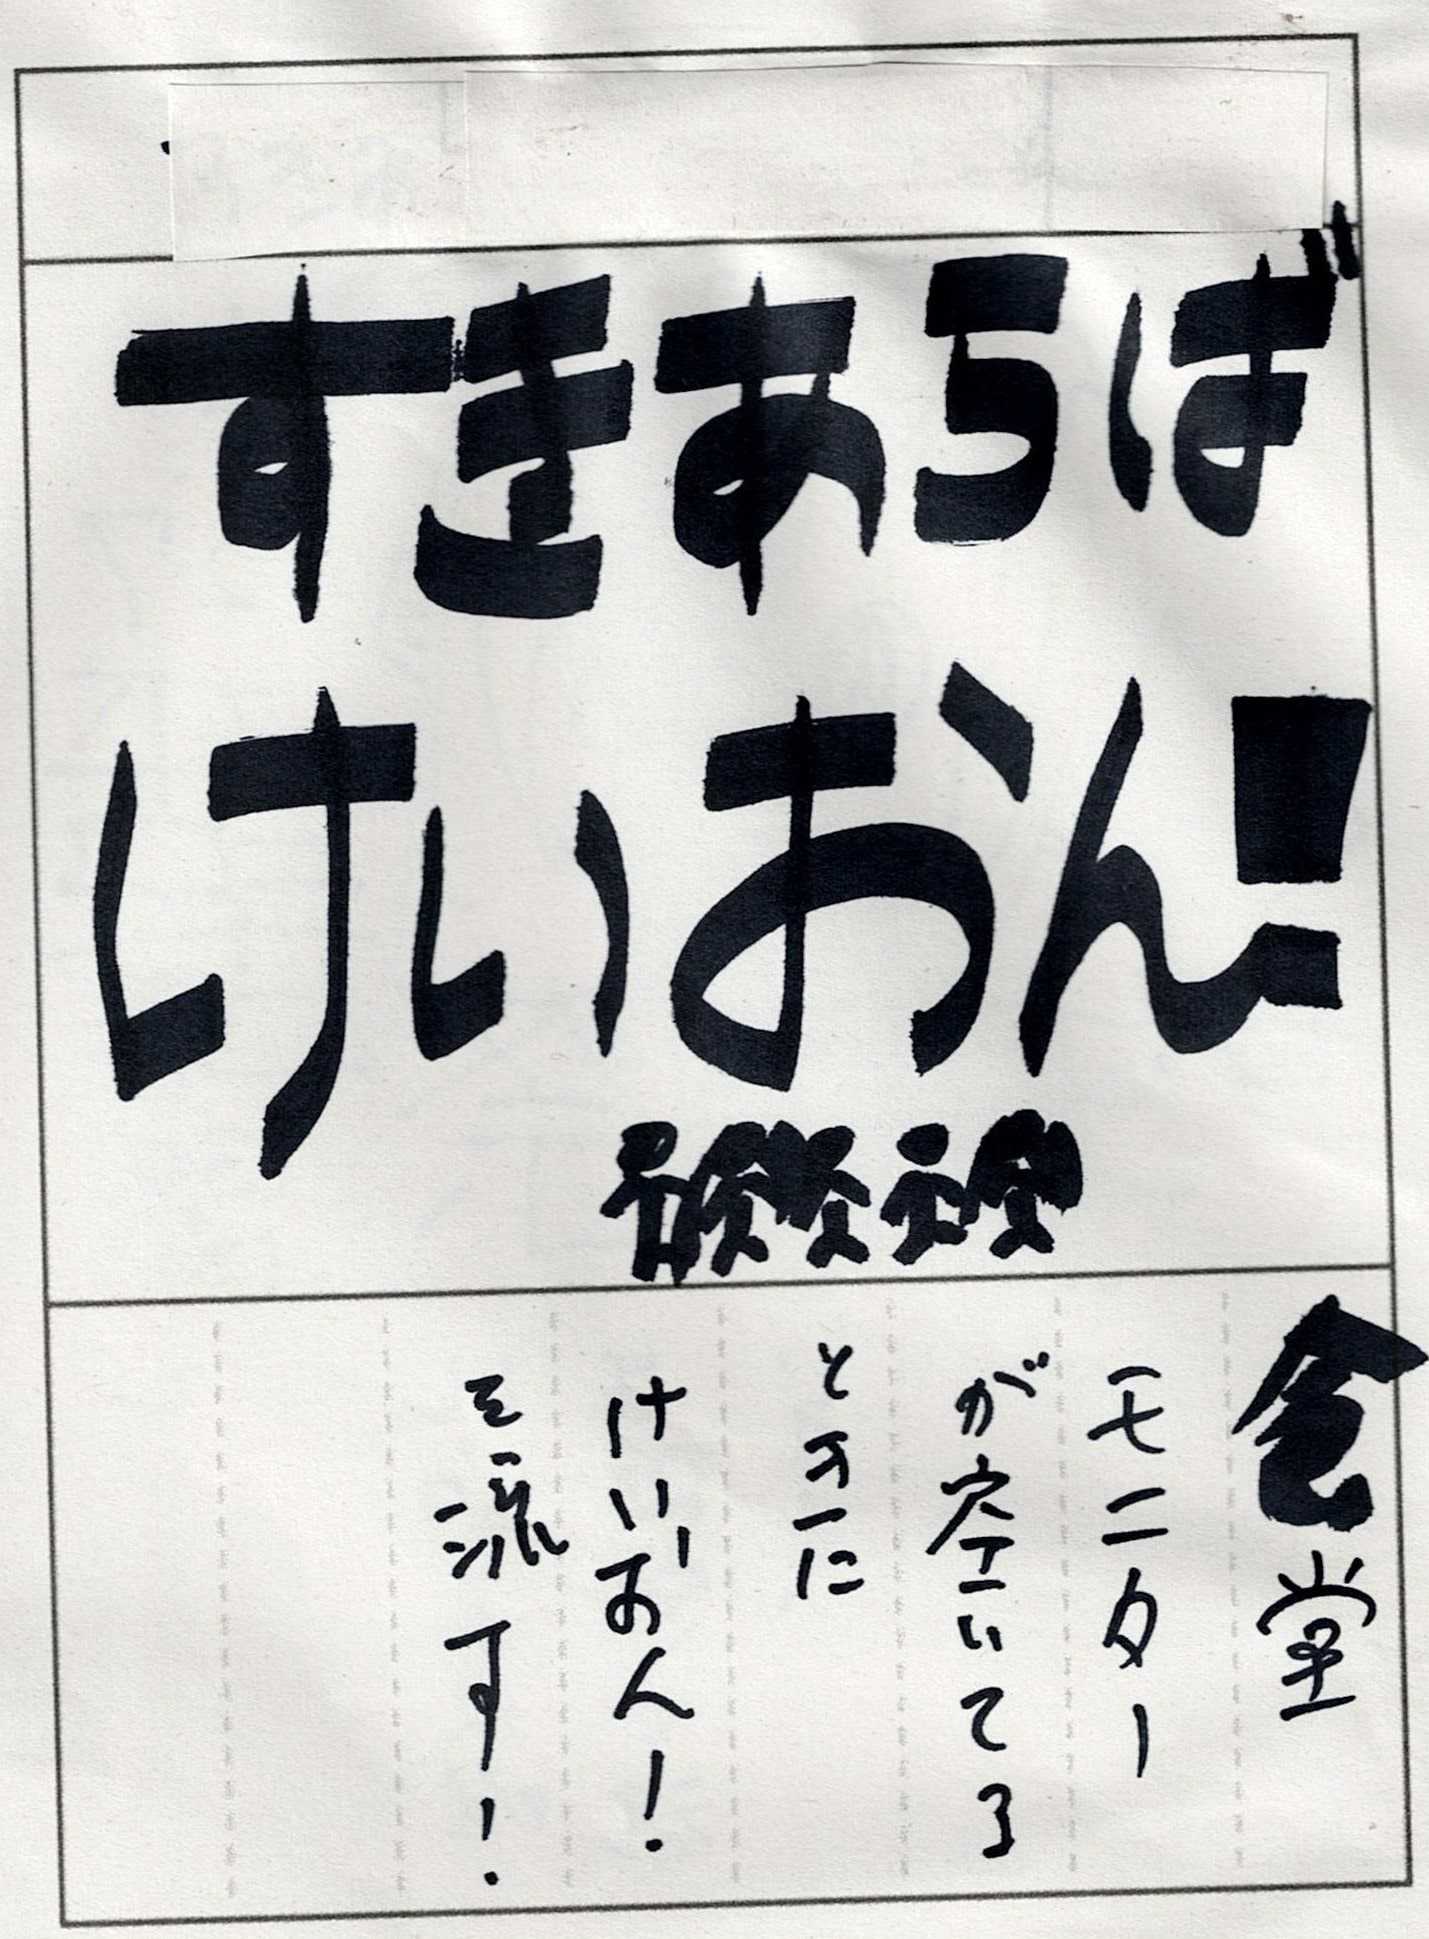 すきあらば
けいおん!
食堂
モニター
が空いてる
ときに
けいおん!
を流す!